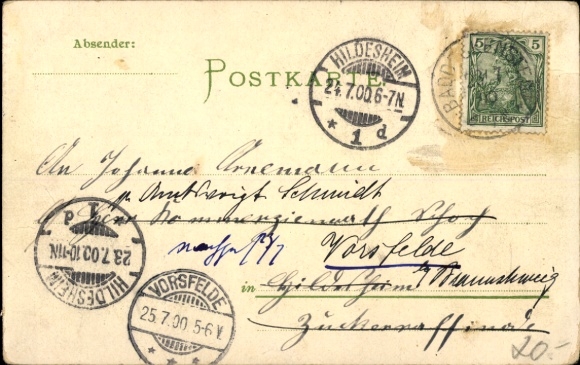 Absender:
POSTKARTE
HILDESHEIM
24.7.00.6-7N.
* 1 d
5 5
REICHSPOST
An Johanna Arnemann
p. Amtsvogt Schmidt
Herr Kommerzienrath
Vorsfelde
in Hildesheim
Braunschweig
Zuckerraffinade
HILDESHEIM
23.7.00.10-11N.
VORSFELDE
25.7.00.5-6V.
* * *
20.-